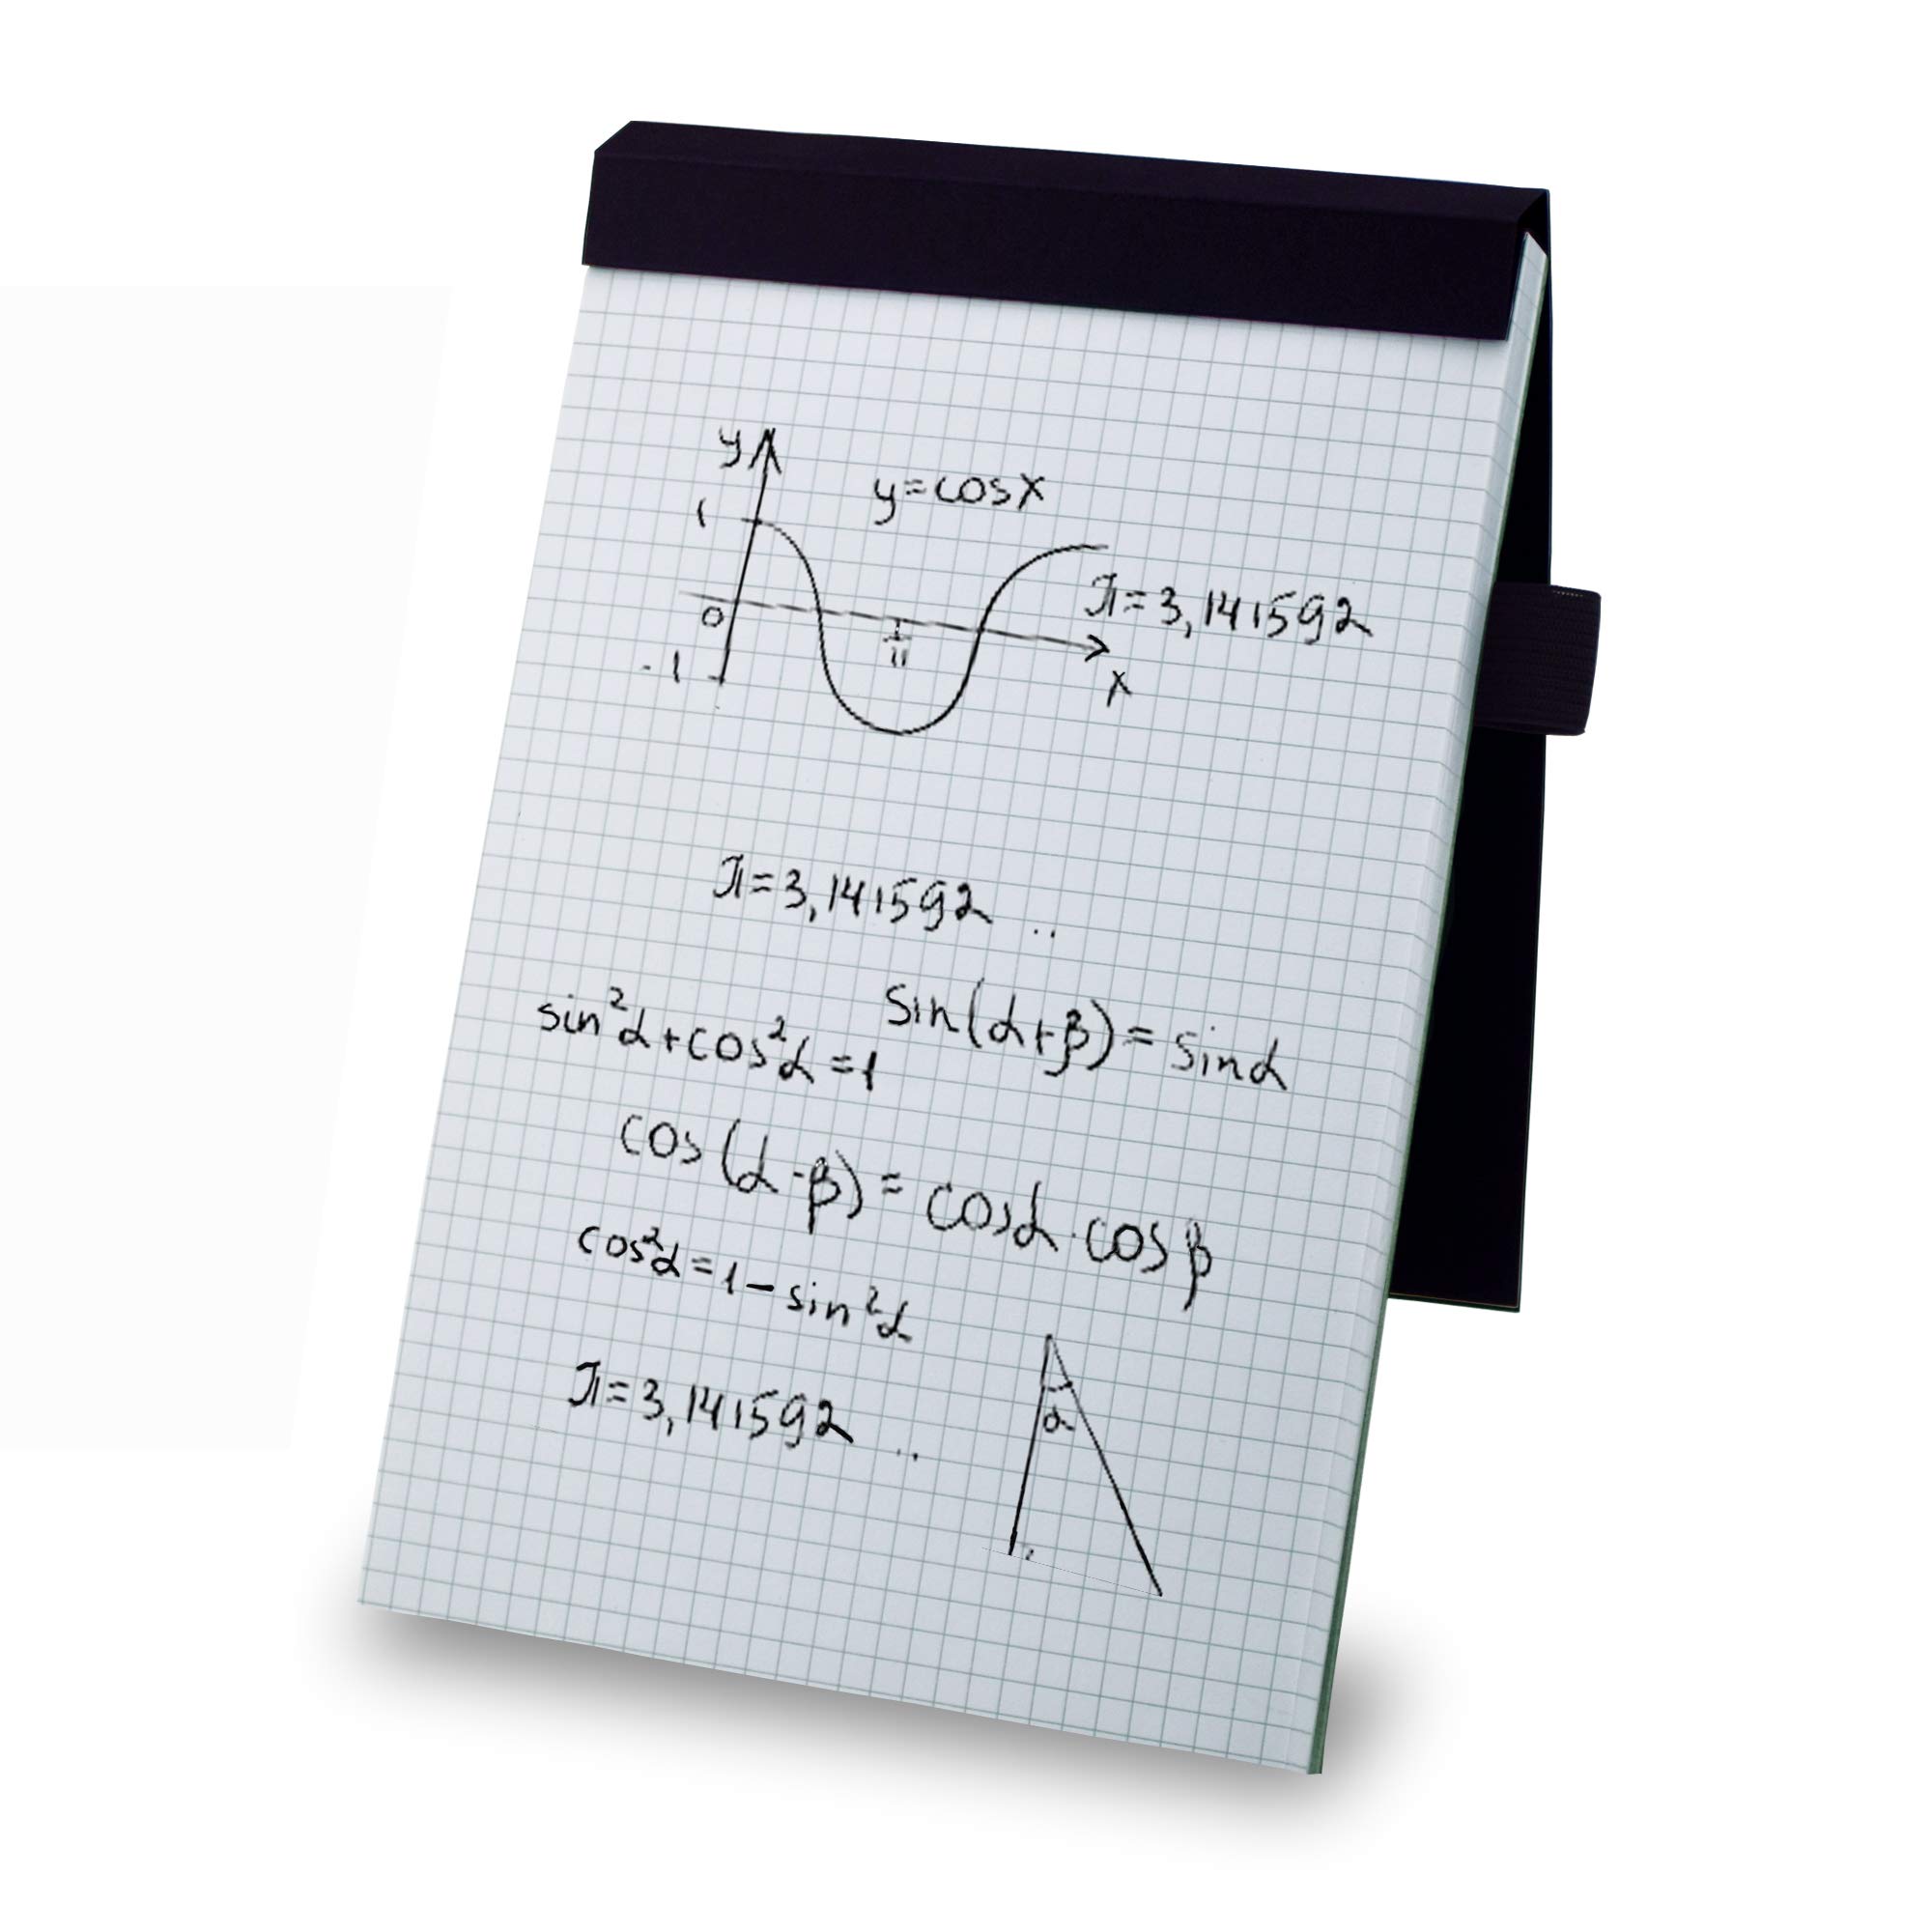 y
y=cosx
1
π=3,141592
0
π
-1
x
π=3,141592 ..
sin²α+cos²α=1
sin(α+β)=sinα
cos(α-β)=cosα·cosβ
cos²α=1-sin²α
π=3,141592 ..
α